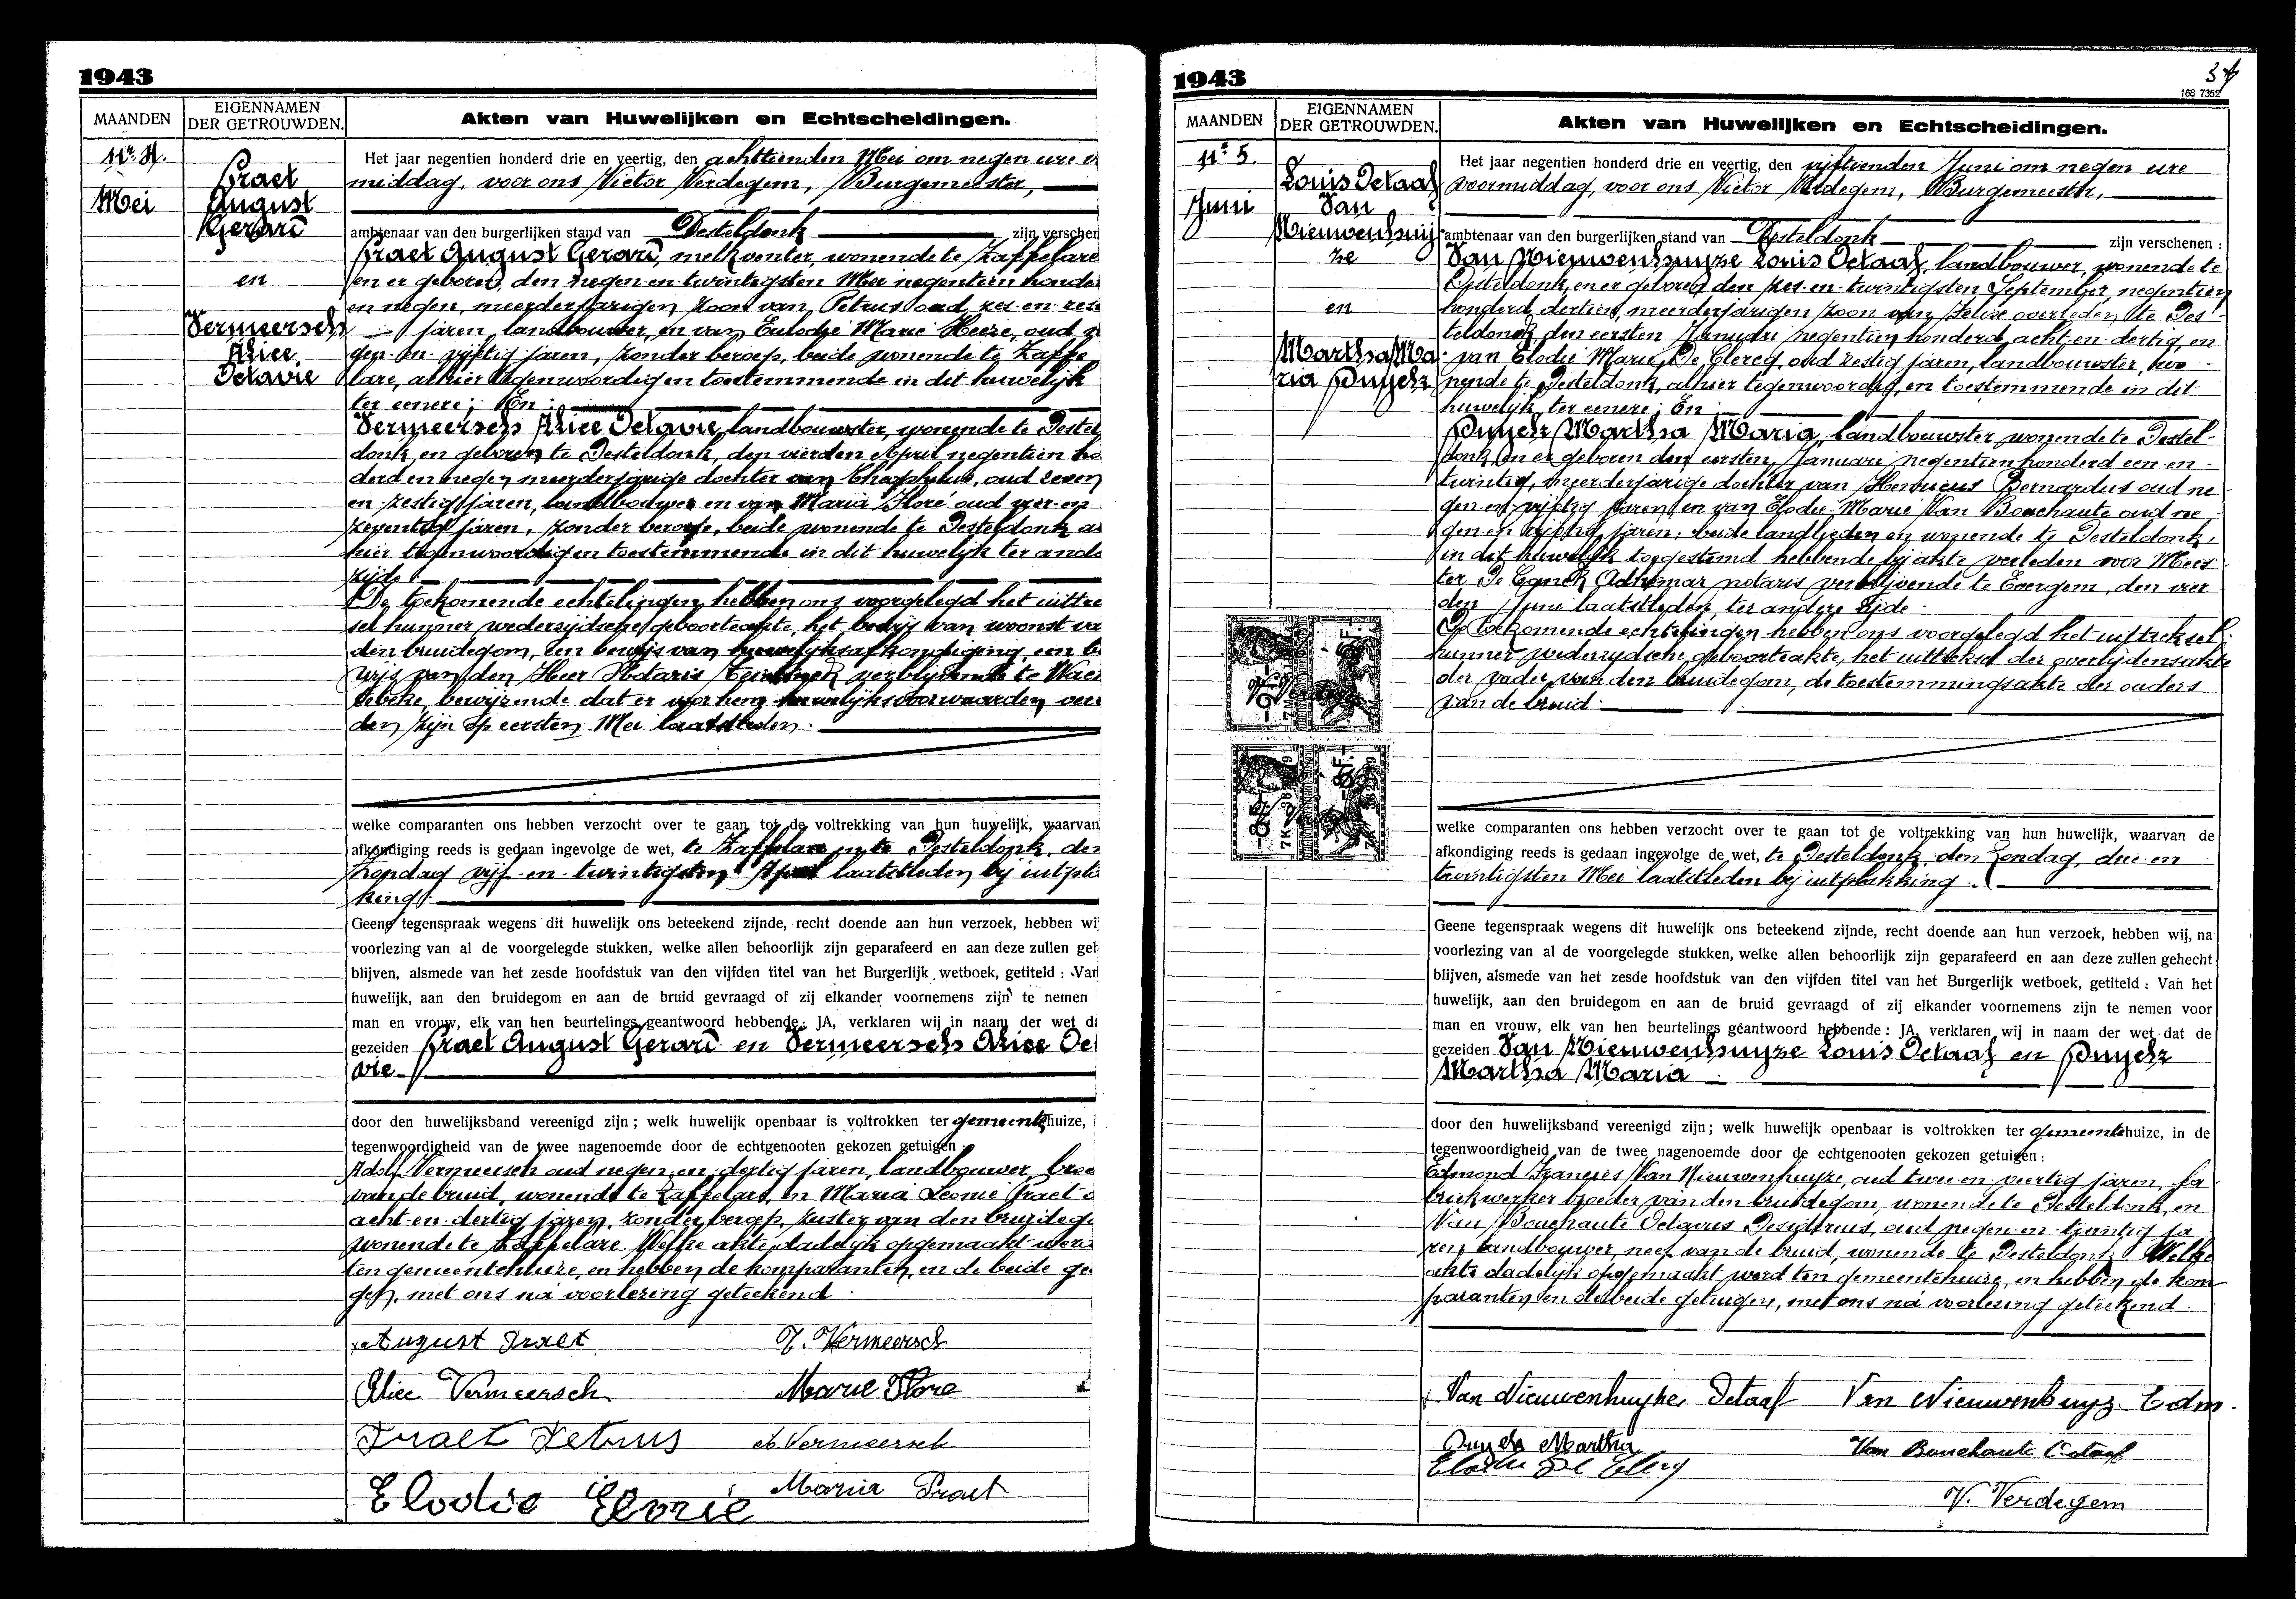 1943
MAANDEN
EIGENNAMEN
DER GETROUWDEN.
Akten van Huwelijken en Echtscheidingen.
Nr 4.
Mei
Praet
August
Gerard
en
Vermeersch
Alice
Octavie
Het jaar negentien honderd drie en veertig, den achttienden Mei om negen ure v
middag, voor ons Victor Verdegem, Burgemeester,
ambtenaar van den burgerlijken stand van Desteldonk zijn verschen
Praet August Gerard, melkventer, wonende te Zaffelare
en er geboren, den negen-en-twintigsten Mei negentien honde
en negen, meerderjarigen zoon van Petrus oud zes-en-zes
jaren, landbouwer, en van Eulodie Marie Heeze, oud n
gen-en-vijftig jaren, zonder beroep, beide wonende te Zaffe
lare, alhier tegenwoordig en toestemmende in dit huwelijk
ter eenere; En:
Vermeersch Alice Octavie, landbouwster, wonende te Destel
donk, en geboren te Desteldonk, den vierden April negentien ho
derd en negen meerderjarige dochter van Theophilus, oud zeven
en-zestig jaren, landbouwer en van Maria Floré oud vier-en
zeventig jaren, zonder beroep, beide wonende te Desteldonk a
hier tegenwoordig en toestemmende in dit huwelijk ter ande
zijde.
De toekomende echtelingen hebben ons voorgelegd het uittre
sel hunner wederzijdsche geboorteakte, het bewijs van woonst va
den bruidegom, een bewijs van huwelijksafkondiging, een b
wijs van den Heer Notaris verblijvende te Wac
tebeke, bewijzende dat er voor hem huwelijksvoorwaarden ver
den zijn op eersten Mei laatstleden.
welke comparanten ons hebben verzocht over te gaan tot de voltrekking van hun huwelijk, waarvan
afkondiging reeds is gedaan ingevolge de wet, te Zaffelare en te Desteldonk, de
Zondag vijf-en-twintigsten April laatstleden bij uitpla
king.
Geene tegenspraak wegens dit huwelijk ons beteekend zijnde, recht doende aan hun verzoek, hebben wij
voorlezing van al de voorgelegde stukken, welke allen behoorlijk zijn geparafeerd en aan deze zullen geh
blijven, alsmede van het zesde hoofdstuk van den vijfden titel van het Burgerlijk wetboek, getiteld : Van
huwelijk, aan den bruidegom en aan de bruid gevraagd of zij elkander voornemens zijn te nemen
man en vrouw, elk van hen beurtelings geantwoord hebbende : JA, verklaren wij in naam der wet da
gezeiden Praet August Gerard en Vermeersch Alice Oc
vie
door den huwelijksband vereenigd zijn ; welk huwelijk openbaar is voltrokken ter gemeentehuize, i
tegenwoordigheid van de twee nagenoemde door de echtgenooten gekozen getuigen :
Adolf Vermeersch oud negen-en-dertig jaren, landbouwer, broe
van de bruid, wonende te Zaffelare, en Maria Leonie Praet o
acht-en-dertig jaren, zonder beroep, zuster van den bruidego
wonende te Zaffelare. Welke akte dadelijk opgemaakt werd
ten gemeentehuize, en hebben de komparanten, en de beide ge
gen, met ons na voorlezing geteekend.
August Praet
T. Vermeersch
Alice Vermeersch
Marie Flore
Praet Petrus
A. Vermeersch
Elodie
Maria Praet
1943
168 7352
MAANDEN
EIGENNAMEN
DER GETROUWDEN.
Akten van Huwelijken en Echtscheidingen.
Nr 5.
Juni
Louis Octaaf
Van
Nieuwenhuy
ze
en
Martha Ma
ria Puyck
Het jaar negentien honderd drie en veertig, den vijftienden Juni om negen ure
voormiddag, voor ons Victor Verdegem, Burgemeester,
ambtenaar van den burgerlijken stand van Desteldonk zijn verschenen :
Van Nieuwenhuyze Louis Octaaf, landbouwer, wonende te
Desteldonk, en er geboren den zes-en-twintigsten September negentien
honderd dertien, meerderjarigen zoon van Felix overleden te Des-
teldonk, den eersten Januari negentien honderd acht-en-dertig, en
van Elodie Marie De Clercq, oud zestig jaren, landbouwster, wo-
nende te Desteldonk, alhier tegenwoordig, en toestemmende in dit
huwelijk ter eenere; En:
Puyck Martha Maria, landbouwster wonende te Destel-
donk, en er geboren den eersten Januari negentien honderd een-en-
twintig, meerderjarige dochter van Henricus Bernardus oud ne-
gen-en-vijftig jaren, en van Elodie Marie Van Bouchaute oud ne
gen-en-vijftig jaren, beide landlieden en wonende te Desteldonk,
in dit huwelijk toegestemd hebbende bij akte verleden voor Mees-
ter De Cynck Adhemar notaris verblijvende te Evergem, den vier
den Juni laatstleden, ter andere zijde.
De toekomende echtelingen hebben ons voorgelegd het uittreksel
hunner wederzijdsche geboorteakte, het uittreksel der overlijdensakte
der vader van den bruidegom, de toestemmingsakte der ouders
van de bruid.
welke comparanten ons hebben verzocht over te gaan tot de voltrekking van hun huwelijk, waarvan de
afkondiging reeds is gedaan ingevolge de wet, te Desteldonk, den Zondag, drie en
twintigsten Mei laatstleden bij uitplakking.
Geene tegenspraak wegens dit huwelijk ons beteekend zijnde, recht doende aan hun verzoek, hebben wij, na
voorlezing van al de voorgelegde stukken, welke allen behoorlijk zijn geparafeerd en aan deze zullen gehecht
blijven, alsmede van het zesde hoofdstuk van den vijfden titel van het Burgerlijk wetboek, getiteld : Van het
huwelijk, aan den bruidegom en aan de bruid gevraagd of zij elkander voornemens zijn te nemen voor
man en vrouw, elk van hen beurtelings geantwoord hebbende : JA, verklaren wij in naam der wet dat de
gezeiden Van Nieuwenhuyze Louis Octaaf en Puyck
Martha Maria
door den huwelijksband vereenigd zijn ; welk huwelijk openbaar is voltrokken ter gemeentehuize, in de
tegenwoordigheid van de twee nagenoemde door de echtgenooten gekozen getuigen :
Edmond François Van Nieuwenhuyze, oud twee-en-veertig jaren, fa
briekwerker broeder van den bruidegom, wonende te Desteldonk, en
Van Bouchaute Octavus Desiderius, oud negen-en-twintig ja
ren, landbouwer, neef van de bruid, wonende te Desteldonk. Welke
akte dadelijk opgemaakt werd ten gemeentehuize, en hebben de kom
paranten en de beide getuigen, met ons na voorlezing geteekend.
Van Nieuwenhuyze Octaaf
Van Nieuwenhuyz Edm.
Puyck Martha
Van Bouchaute Octaaf
Elodie De Clercq
V. Verdegem